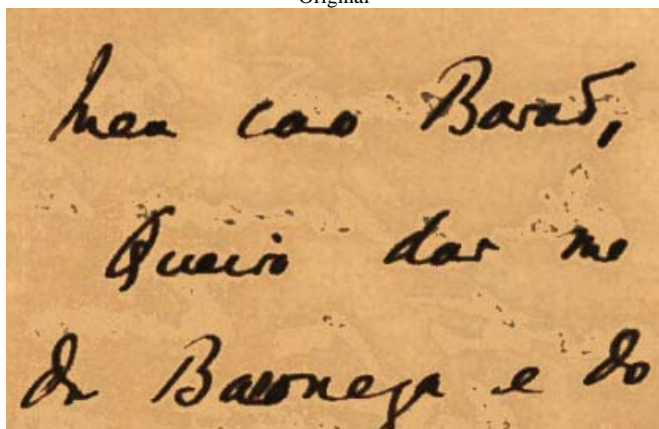 Original
Meu caro Barão,
Queira dar me
da Baroneza e do